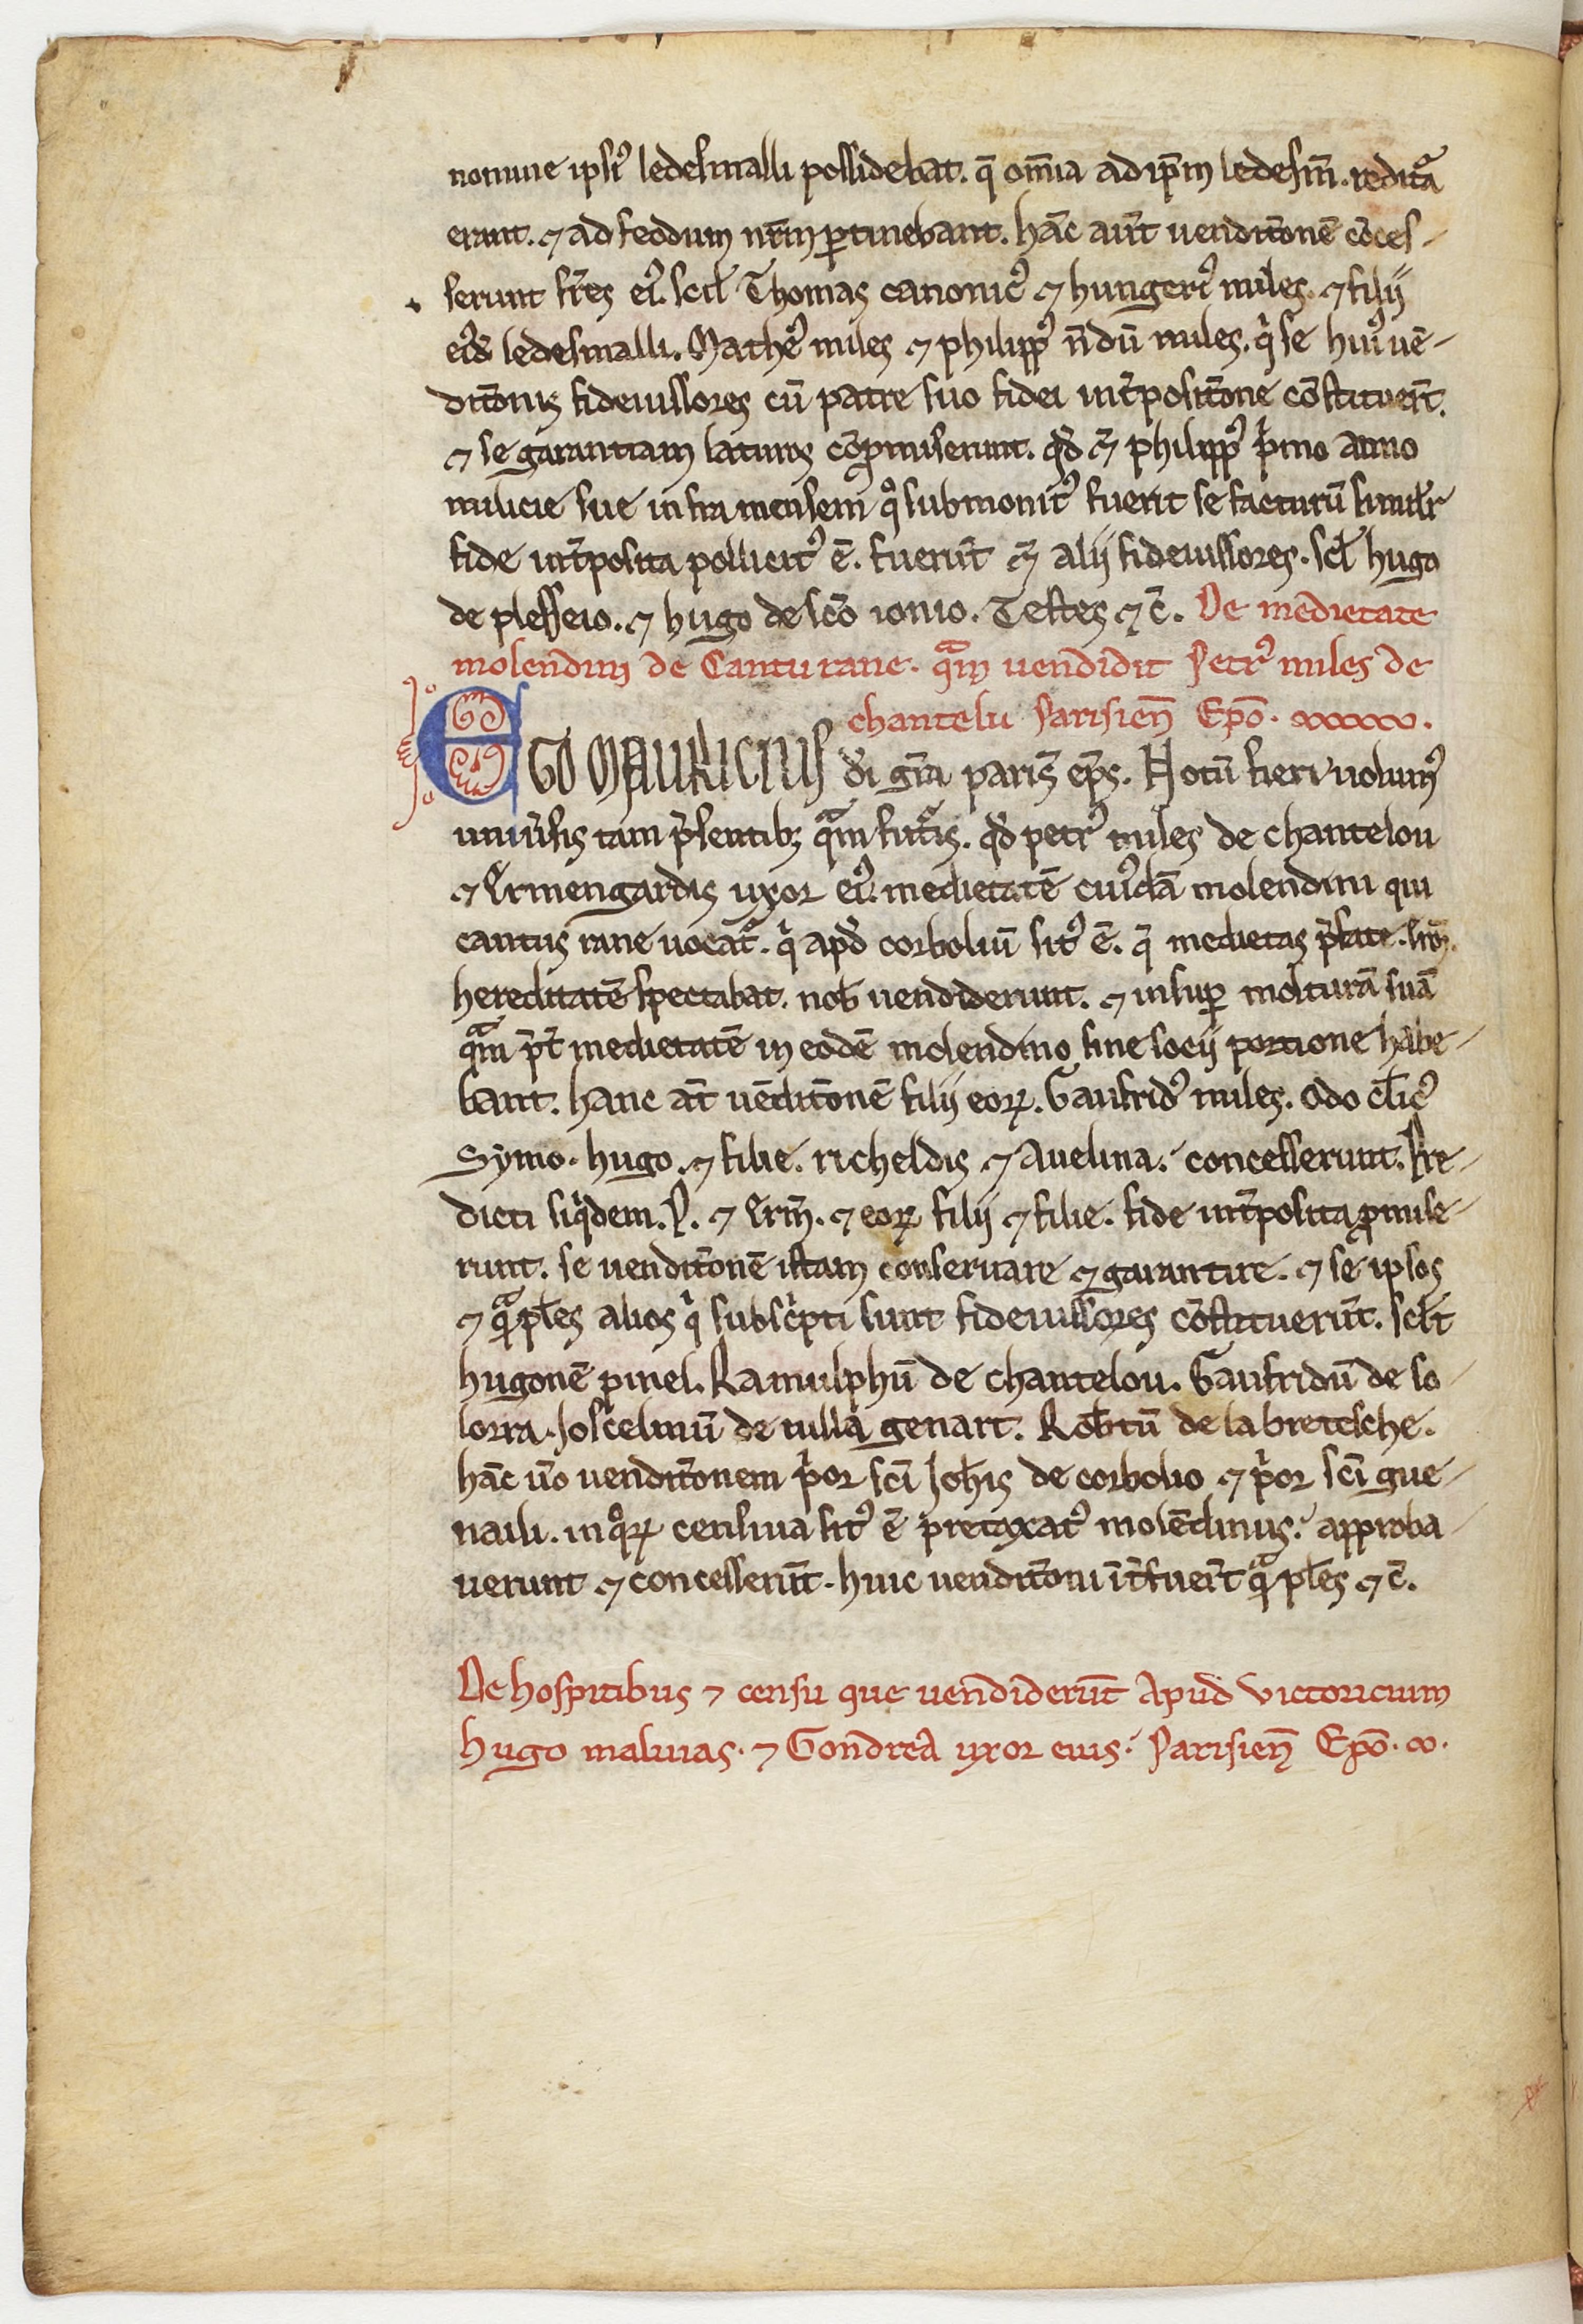 nomine ipsiꝰ ledesmalli possidebat. q̄ om̄ia ad ip̄m ledesm̄. reditᷓa
erant. ⁊ ad feodum nr̄m ꝑtinebant. hāc aut̄ uendit̄onē cōces-
serunt fr̄es eiꝰ. scil̄ Thomas canonicꝰ ⁊ hungerꝰ miles. ⁊ filij
eiꝰd̄ ledesmalli. Matheꝰ miles ⁊ philippꝰ n̄dū miles. qͥ se huiꝰ uē-
dit̄onis fideiussores cū patre suo fidei int̄posit̄one cōstituer̄t.
⁊ se garantiam laturos cōpromiserunt. qd̄ ⁊̄ philippꝰ pͥmo anno
milicie sue infra mensem qͦ submonitꝰ fuerit se facturū similr̄
fide int̄posita pollicitꝰ ē. fuerūt ⁊̄ alij fideiussores. scl̄ hugo
de plesseio. ⁊ hugo de sc̄o ionio. Testes ⁊ c̄. De medietate
molendini de Cantu rane. qᷓm uendidit Petrꝰ miles de
chantelu Parisien̄ Ep̄o.
EGO MAURICIUS d̄i gr̄a paris̄ ep̄s. Notū fieri uolumꝰ
uniu̾sis tam p̄sentibꝫ qᷓm futᷓis. qd̄ petrꝰ miles de chantelou
⁊ Ermengardis uxor eiꝰ. medietatē cuiꝰdā molendini qui
cantus rane uocatᷣ. qͥ apd̄ corboliū sitꝰ ē. q̄ medietas p̄fate. Erm̄.
hereditatē spectabat. nob̄ uendiderunt. ⁊ insuꝑ molturā suā
qᷓm p̄t medietatē in eodē molendino sine socij portione habe-
bant. hanc at̄ uēdit̄onē filij eoꝝ. Gaufridꝰ miles. Odo cl̄icꝰ
Symo. hugo. ⁊ filie. richeldis ⁊ Auelina. concesserunt. Pre-
dicti siqͥdem. P. ⁊ Erm̄. ⁊ eoꝝ filij ⁊ filie. fide int̄posita ꝓmise-
runt. se uendit̄onē istam conseruare ⁊ garantire. ⁊ se ipsos
⁊ qᷓmpl̄es alios qͥ subsc̄pti sunt fideiussores cōstituerūt. scl̄t
hugonē pinel. Ranulphū de chantelou. Gaufridū de so-
lorra. Joscelinū de uilla genart. Rob̄tū de la bretesche.
hāc u̾o uendit̄onem pͥor sc̄i Joh̄is de corbolio ⁊ pͥor sc̄i gue-
naili. in qͦꝝ censiua sitꝰ ē pretaxatꝰ molēdinus. approba-
uerunt ⁊ concesserūt. huic uendit̄oni īt̄fuer̄t qᷓmpl̄es ⁊ c̄.
De hospitibus ⁊ censu que uendiderūt Apud Victoricium
hugo maluias. ⁊ Gondrea uxor eius. Parisien̄ Ep̄o.